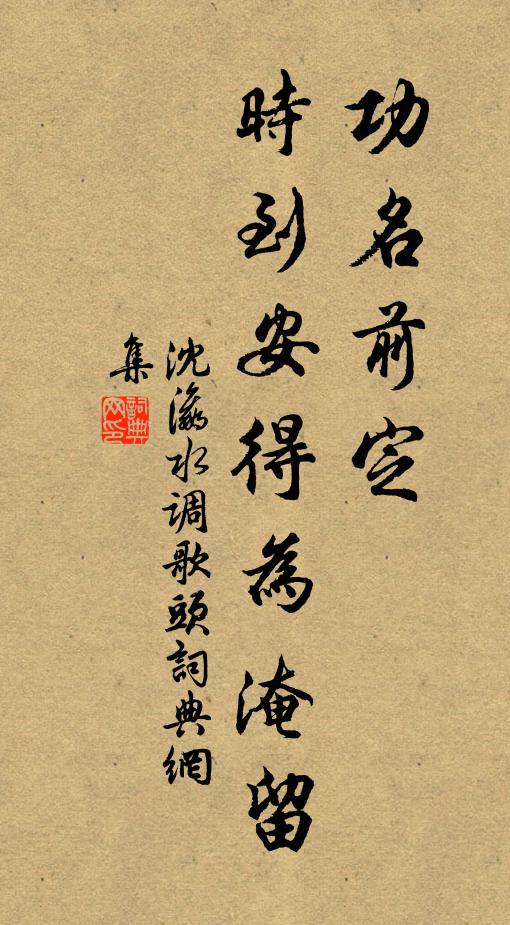 功名前定
時到安得為淹留
沈瀛水调歌頭詞典網
集
詞典
网印